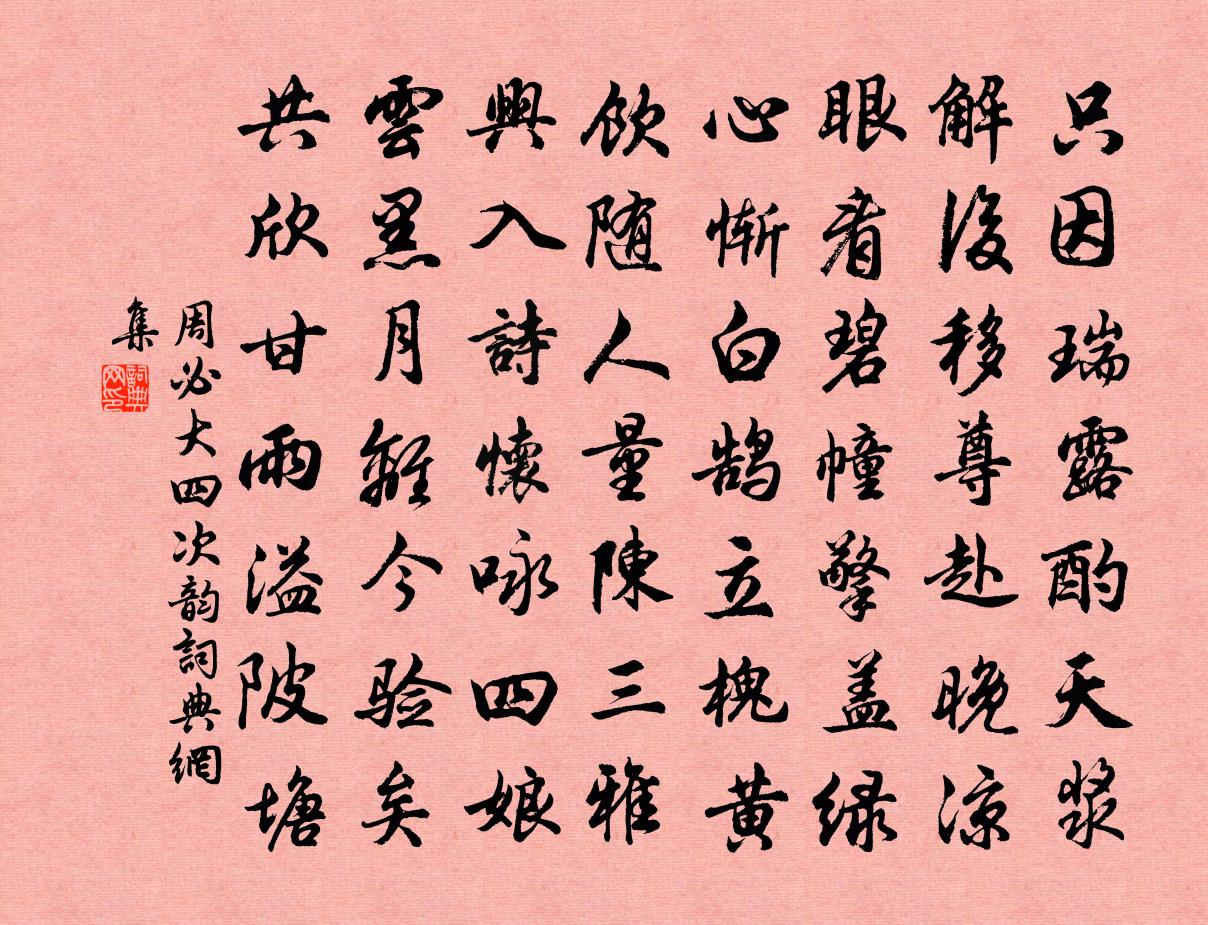 只因瑞露酌天漿
解後移尊赴晚凉
眼看碧幢擎盖緑
心慚白鹄立槐黄
飲随人量陳三雅
興入詩懷咏四娘
雲黑月離今验矣
共欣甘雨溢陂塘
周必大四次韵詞典網
集
詞典网印